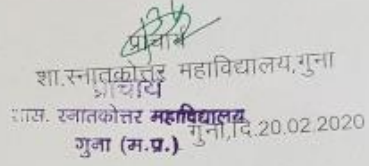 प्राचार्य
शा.स्नातकोत्तर महाविद्यालय,गुना
प्राचार्य
शास. स्नातकोत्तर महाविद्यालय
गुना,दि.20.02.2020
गुना (म.प्र.)